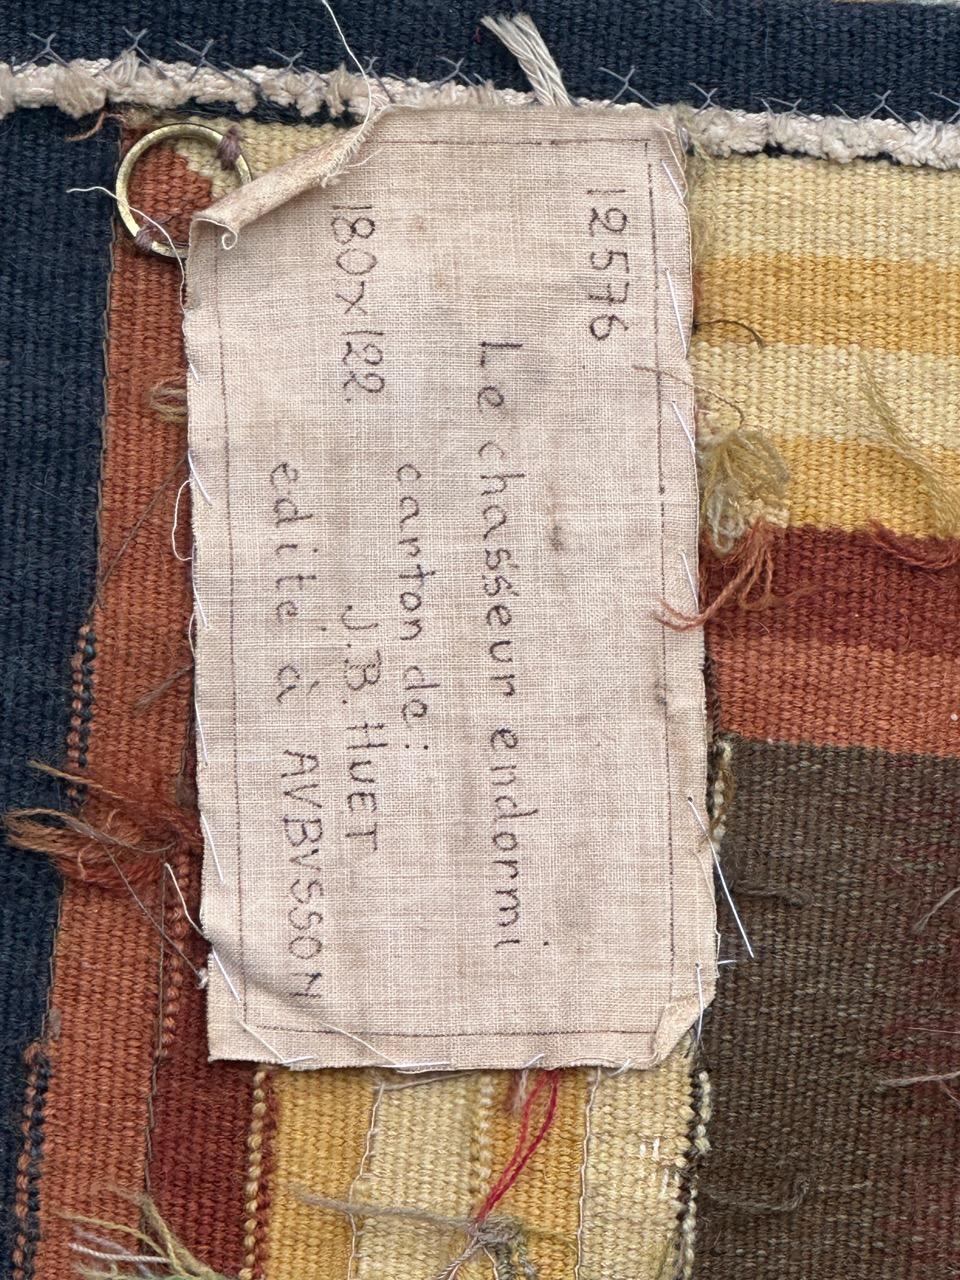 12576
Le chasseur endormi
carton de:
180x122. J.B. HUET
edité à AVBVSSON